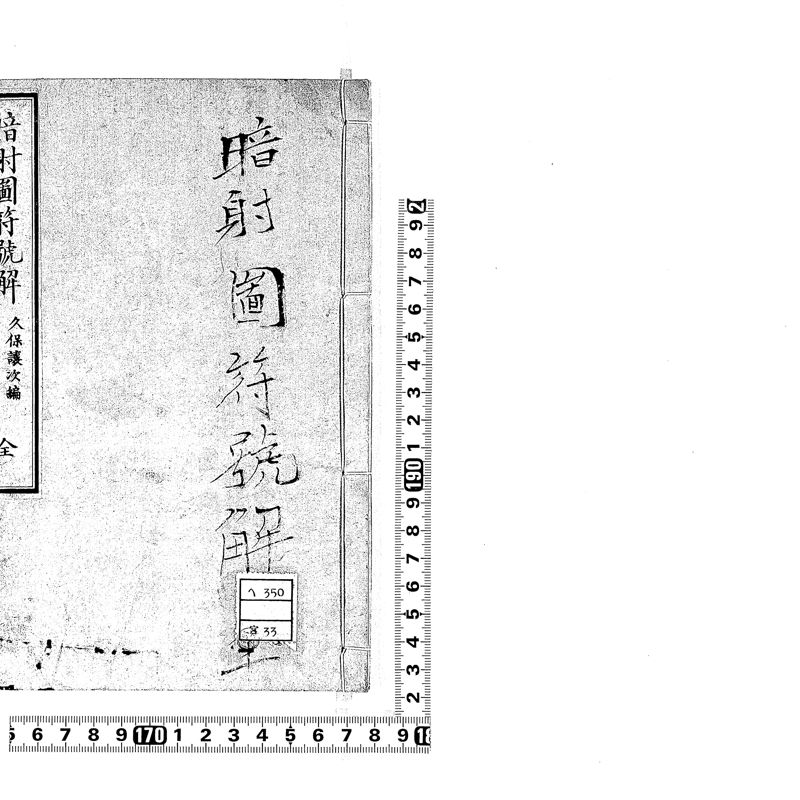 暗射圖符號解
全
暗射圖符號解
久保讓次編
全
ヘ 350
33
2
9
8
7
6
5
4
3
2
1
190
9
8
7
6
5
4
3
2
5 6 7 8 9 170 1 2 3 4 5 6 7 8 9 18